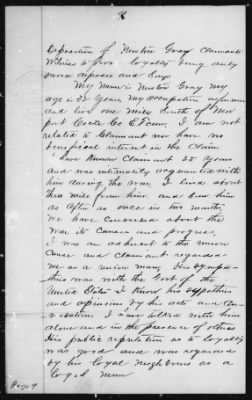 8
Deposition of Newton Gray claimants
Witness to prove loyalty being duly
sworn deposes and says
My name is Newton Gray my
age is 35 years my occupation a farmer
and live one mile South of New
port Cocke Co E Tenn, I am not
related to Claimant nor have no
beneficial interest in the Claim
have Known Claimant 25 years
and was intimately acquainted with
him during the war, I lived about
this mile from him and saw him
as often as once in two months,
We have conversed about the
war its Causes and progress,
I was an adherent to the union
Cause and Claimant regarded
me as a union man, His sympa-
thies was with the Govt of the
United States I Know his sympathies
and opinions by his acts and Con-
versation I have talked with him
alone and in the presence of others
His public reputation as to loyalty
was good and was regarded
by his loyal neighbors as a
loyal man
Page 9